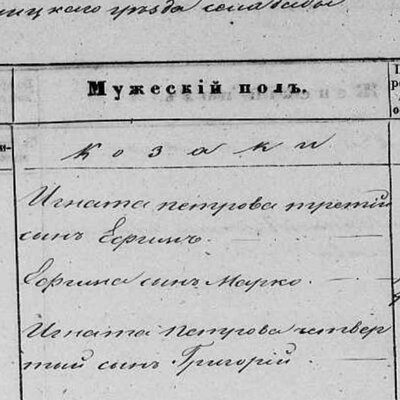 ницкаго уѣзда селабабы
Мужескій полъ.
Козаки
Игната петрова третій
сынъ Ефимъ.
Ефима сынъ Марко.
Игната Петрова четвер
тый сынъ Григорій.